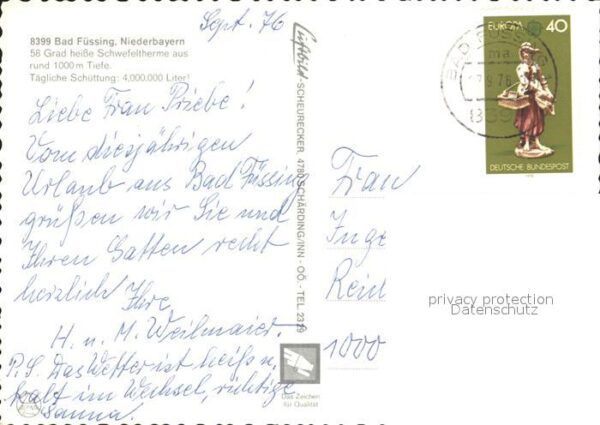 Sept. 76
8399 Bad Füssing, Niederbayern
58 Grad heiße Schwefeltherme aus
rund 1000 m Tiefe.
Tägliche Schüttung: 4.000.000 Liter!
Liebe Frau Priebe!
Vom diesjährigen
Urlaub aus Bad Füssing
grüßen wir Sie und
Ihren Gatten recht
herzlich! Ihre
H. u. M. Weilmaier.
P.S. Das Wetter ist heiß u.
kalt im Wechsel, richtige
Sauna.
Luftbild-SCHEURECKER 4780 SCHÄRDING/INN - OÖ. - TEL. 2319
Das Zeichen
für Qualität
EUROPA 40
DEUTSCHE BUNDESPOST
BAD FÜSSING
839
Frau
Inge
Rein
1000
privacy protection
Datenschutz